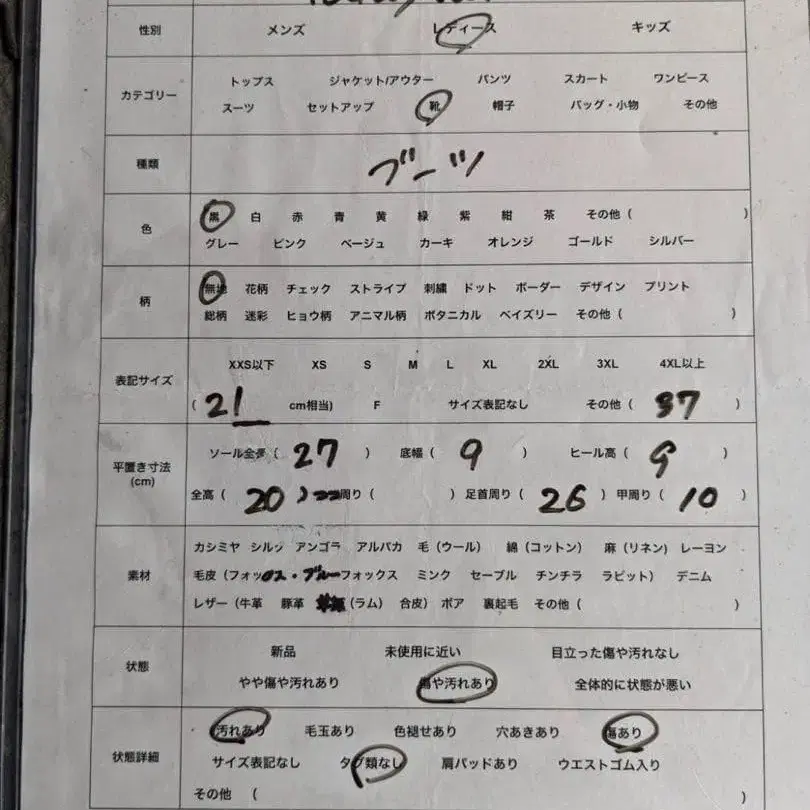 性別 メンズ レディース キッズ
カテゴリー トップス ジャケット/アウター パンツ スカート ワンピース
スーツ セットアップ 靴 帽子 バッグ・小物 その他
種類 ブーツ
色 黒 白 赤 青 黄 緑 紫 紺 茶 その他 ( )
グレー ピンク ベージュ カーキ オレンジ ゴールド シルバー
柄 無地 花柄 チェック ストライプ 刺繍 ドット ボーダー デザイン プリント
総柄 迷彩 ヒョウ柄 アニマル柄 ボタニカル ペイズリー その他 ( )
表記サイズ XXS以下 XS S M L XL 2XL 3XL 4XL以上
( 21 cm相当) F サイズ表記なし その他 ( 37 )
平置き寸法 (cm) ソール全長 ( 27 ) 底幅 ( 9 ) ヒール高 ( 9 )
全高 ( 20 ) 周り ( ) 足首周り ( 26 ) 甲周り ( 10 )
素材 カシミヤ シルク アンゴラ アルパカ 毛 (ウール) 綿 (コットン) 麻 (リネン) レーヨン
毛皮 (フォックス・ブルーフォックス ミンク セーブル チンチラ ラビット) デニム
レザー (牛革 豚革 (ラム) 合皮) ボア 裏起毛 その他 ( )
状態 新品 未使用に近い 目立った傷や汚れなし
やや傷や汚れあり 傷や汚れあり 全体的に状態が悪い
状態詳細 汚れあり 毛玉あり 色褪せあり 穴あきあり 傷あり
サイズ表記なし タグ類なし 肩パッドあり ウエストゴム入り
その他 ( )